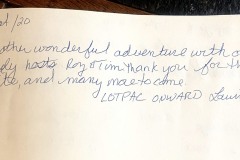 /20
other wonderful adventure with o
dy hosts Roy & Tim thank you for t
te, and many more to come.
LOTPAC ONWARD